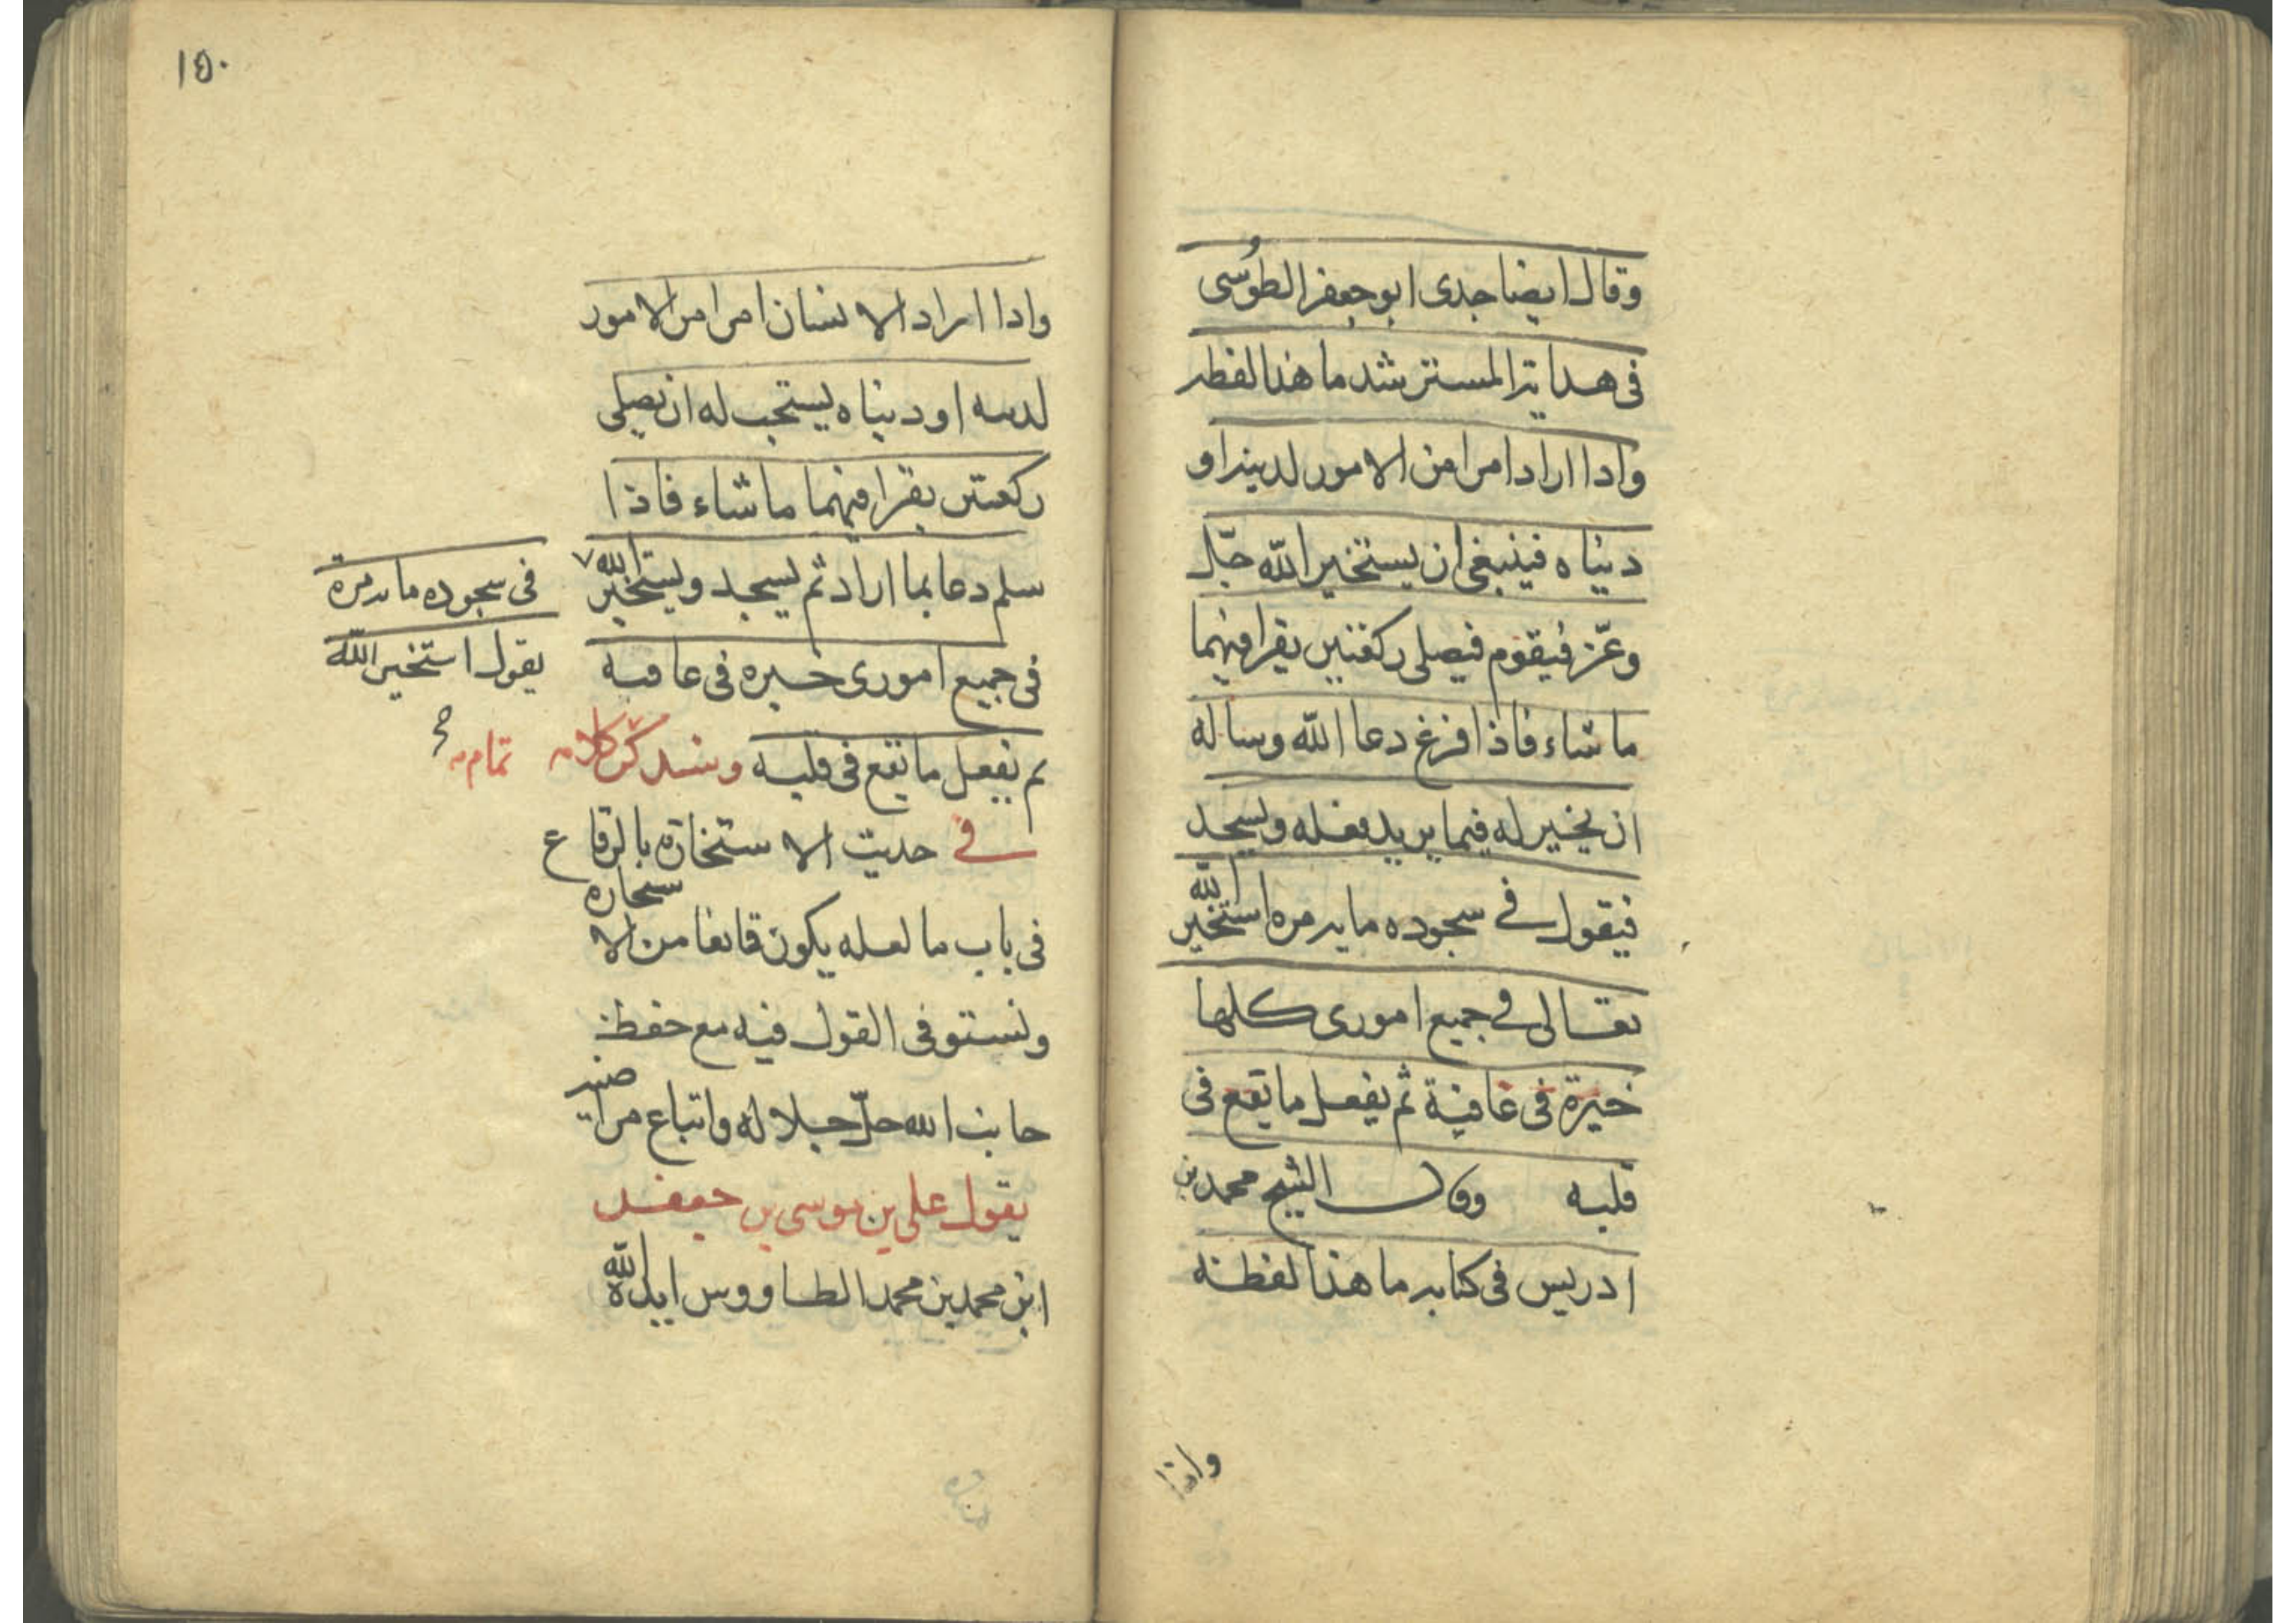 وقال ايضا جدى ابو جعفر الطوسى
فى هداية المسترشد ما هذا لفظه
واذا اراد امرا من الامور لدينه او
دنياه فينبغى ان يستخير الله جل
وعز فيقوم فيصلى ركعتين يقرا فيهما
ما شاء فاذا فرغ دعا الله وساله
ان يخير له فيما يريد فعله ويسجد
فيقول فى سجوده ماية مرة استخير الله
تعالى فى جميع امورى كلها
خيرة فى عافية ثم يفعل ما يقع فى
قلبه وقال الشيخ محمد بن
ادريس فى كتابه ما هذا لفظه
واذا
١٥٠
واذا اراد الانسان امرا من الامور
لدينه او دنياه يستحب له ان يصلى
ركعتين يقرا فيهما ما شاء فاذا
سلم دعا بما اراد ثم يسجد ويستخير الله
فى سجوده ماية مرة
يقول استخير الله
فى جميع امورى خيرة فى عافية
ثم يفعل ما يقع فى قلبه وسنذكر كلامه تمامه
فى حديث الاستخارة بالرقاع
فى باب ما لعله يكون مانعا من الاستخارة
ونستوفى القول فيه مع حفظ
جانب الله جل جلاله واتباع مراضيه
يقول على بن موسى بن جعفر
ابن محمد بن محمد الطاووس ايده الله